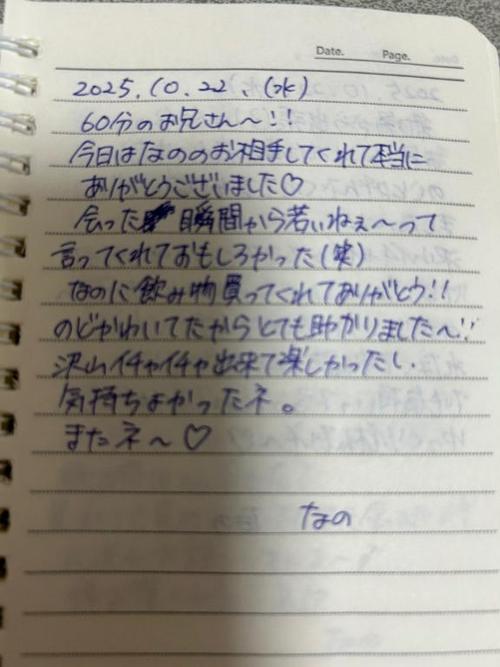 Date. Page.
2025.10.22.(水)
60分のお兄さん〜!!
今日はなののお相手してくれて本当に
ありがとうございました♡
会った瞬間から若いねぇ〜って
言ってくれておもしろかった(笑)
なのに飲み物買ってくれてありがとう!!
のどかわいてたからとても助かりました〜!!
沢山イチャイチャ出来て楽しかったし、
気持ちよかったネ。
またネ〜♡
なの